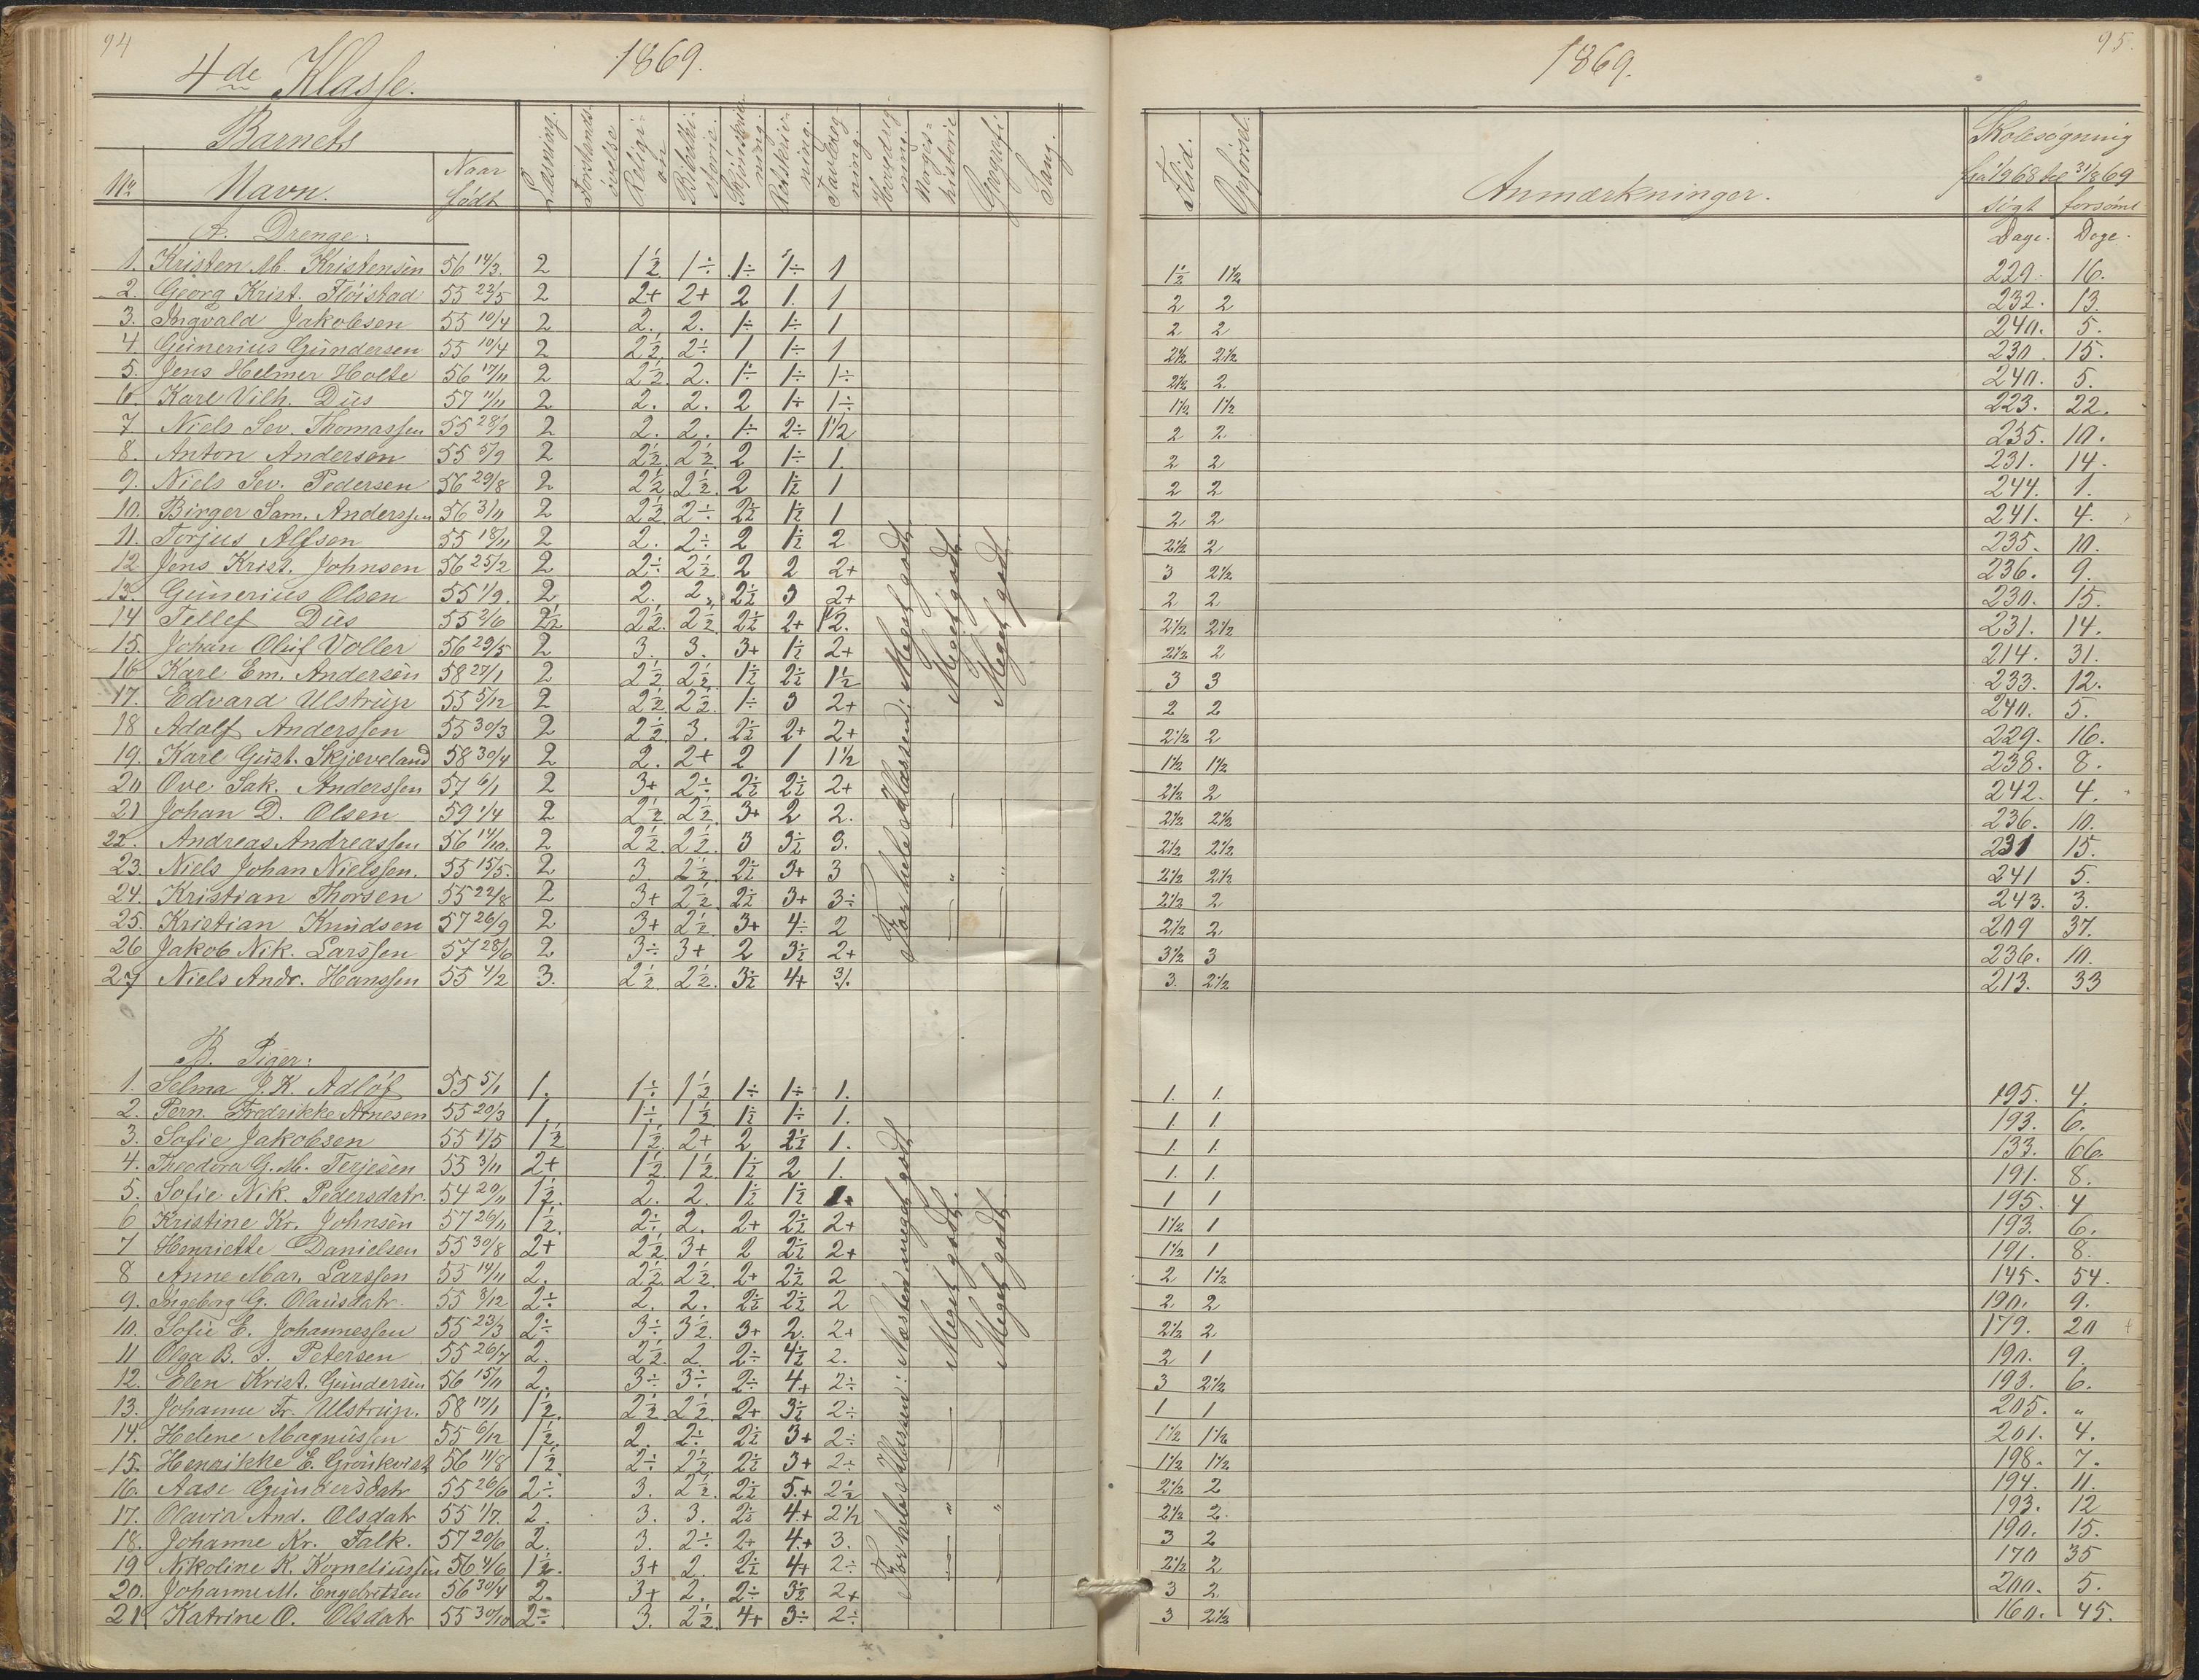 94
4de Klasse.
1869.
1869.
95.
Barnets
No
Navn.
Naar født
Læsning.
Forstands-øvelse
Religi-on
Bibelhi-storie.
Skjønskriv-ning.
Retskriv-ning.
Tavlereg-ning.
Hovedreg-ning.
Norges-historie
Geografi.
Sang.
Flid.
Opførsel.
Anmærkninger.
Skolesøgning
fra 1/9 68 til 31/8 69
søgt forsømt
Dage. Dage.
A. Drenge:
1. Kristen M. Kristensen 56 14/3. 2 1½ 1÷ 1÷ 1÷ 1 1½ 1½ 229. 16.
2. Georg Krist. Fløistad 55 23/5 2 2+ 2+ 2 1. 1 2 2 232. 13.
3. Ingvald Jakobsen 55 10/4 2 2. 2. 1÷ 1÷ 1 2 2 240. 5.
4. Gunerius Gundersen 55 10/4 2 2½ 2÷ 1 1÷ 1 2½ 2½ 230. 15.
5. Jens Helmer Holte 56 17/11 2 2½ 2. 1÷ 1÷ 1÷ 2½ 2. 240. 5.
6. Karl Vilh. Dus 57 11/11 2 2. 2. 2 1÷ 1÷ 1½ 1½ 223. 22.
7 Niels Sev. Thomassen 55 28/9 2 2. 2. 1÷ 2÷ 1½ 2 2. 235. 10.
8. Anton Andersen 55 5/9 2 2½. 2½ 2 1÷ 1. 2 2 231. 14.
9. Niels Sev. Pedersen 56 29/8 2 2½ 2½. 2 1½ 1 2 2 244. 1.
10. Birger Sam. Anderssen 56 3/11 2 2½ 2÷ 2½ 1½ 1 2 2 241. 4.
11. Torjus Alfsen 55 18/11 2 2. 2÷ 2 1½ 2 2½ 2 235. 10.
12 Jens Krist. Johnsen 56 25/2 2 2÷ 2½ 2 2 2+ 3 2½ 236. 9.
13. Gunerius Olsen 55 1/9. 2 2. 2. 2½ 3 2+ 2 2 230. 15.
14 Tellef Dus 55 2/6 2½ 2½ 2½ 2½ 2+ 2. 2½ 2½ 231. 14.
15. Johan Oluf Voller 56 29/5 2 3. 3. 3+ 1½ 2+ 2½ 2 214. 31.
16 Karl Em. Andersen 58 27/1 2 2½ 2½. 1½ 2½ 1½ 3 3 233. 12.
17. Edvard Ulstrup 55 5/12 2 2½ 2½. 1÷ 3 2+ 2 2 240. 5.
18 Adolf Anderssen 55 30/3 2 2½ 3. 2½ 2+ 2+ 2½ 2 229. 16.
19. Karl Gust. Skjæveland 58 30/4 2 2. 2+ 2 1 1½ 1½ 1½ 238. 8.
20 Ove Sak. Anderssen 57 6/1 2 3+ 2÷ 2½ 2½ 2+ 2½ 2 242. 4.
21 Johan D. Olsen 59 1/4 2 2½ 2½. 3+ 2 2. 2½ 2½ 236. 10.
22. Andreas Andreassen 56 14/10. 2 2½. 2½. 3 3½ 3. 2½ 2½ 231 15.
23. Niels Johan Nielssen. 55 15/5. 2 3. 2½. 2½ 3+ 3 2½ 2½ 241 5.
24. Kristian Thorsen 55 22/8 2 3+ 2½ 2½ 3+ 3÷ 2½ 2 243. 3.
25. Kristian Knudsen 57 26/9 2 3+ 2½ 3+ 4÷ 2 2½ 2. 209 37.
26 Jakob Nik. Larssen 57 28/6 2 3÷ 3+ 2 3½ 2+ 3½ 3 236. 10.
27 Niels Andr. Hanssen 55 4/2 3. 2½ 2½. 3½ 4+ 3. 2½ 213. 33
For hele Klassen: Meget godt.
Meget godt.
Meget godt.
B. Piger:
1. Selma J. K. Adløf 55 5/1 1. 1÷ 1½ 1÷ 1÷ 1. 1. 1. 195. 4.
2. Pern. Fredrikke Arnesen 55 20/3 1. 1÷ 1½ 1½ 1÷ 1. 1. 1. 193. 6.
3. Sofie Jakobsen 55 1/5 1½ 1½ 2+ 2 2½ 1. 1. 1. 133. 66.
4. Theodora G. M. Terjesen 55 3/11 2+ 1½ 1½. 1½ 2 1. 1. 1. 191. 8.
5. Sofie Nik. Pedersdatr. 54 20/11 1½. 2. 2. 1½ 1½ 1+ 1 1 195. 4
6 Kristine Kr. Johnsen 57 26/11 1½. 2÷ 2. 2+ 2½ 2+ 1½ 1 193. 6.
7 Henriette Danielsen 55 30/8 2+ 2½. 3+ 2 2½ 2+ 1½ 1 191. 8.
8 Anne Mar. Larssen 55 14/11 2. 2½. 2½. 2+ 2½ 2 2 1½ 145. 54.
9. Ingeborg G. Olausdatr. 55 8/12 2÷ 2. 2. 2½ 2½ 2 2 2 190. 9.
10. Sofie E. Johannessen 55 23/3 2÷ 3÷ 3½. 3+ 2. 2+ 2½ 2 179. 20
11 Olga B. S. Petersen 55 26/7 2. 2½. 2. 2÷ 4½ 2. 2 1 190. 9.
12. Elen Krist. Gundersen 56 15/11 2. 3÷ 3÷ 2÷ 4+ 2÷ 3 2½ 193. 6.
13. Johanne Fr. Ulstrup. 58 17/1 1½. 2½ 2½. 2+ 3½ 2÷ 1 1 205. "
14. Helene Magnussen 55 6/12 1½. 2. 2÷ 2½ 3+ 2÷ 1½ 1½ 201. 4.
15. Henrikke E. Grønkvist 56 11/8 1½ 2÷ 2½ 2½ 3+ 2÷ 1½ 1½ 198. 7.
16. Aase Gundersdatr 55 26/6 2÷ 3. 2½. 2½ 5.+ 2½ 2½ 2 194. 11.
17. Olavia And. Olsdatr 55 1/7. 2. 3. 3. 2½ 4.+ 2½ 2½ 2. 193. 12
18. Johanne Kr. Falk. 57 20/6 2. 3. 2÷ 2+ 4.+ 3. 3 2 190. 15.
19 Nikoline K. Korneliussen 56 4/6 1½. 3+ 2. 2½ 4+ 2÷ 2½ 2 170 35
20. Johanne M. Engebritsen 56 30/4 2. 3+ 2. 2÷ 3½ 2+ 3 2. 200. 5.
21 Katrine O. Olsdatr 55 30/10 2÷ 3. 2½. 4+ 3÷ 2÷ 3 2½ 160. 45.
For hele Klassen: Næsten meget godt
Meget godt.
Meget godt.